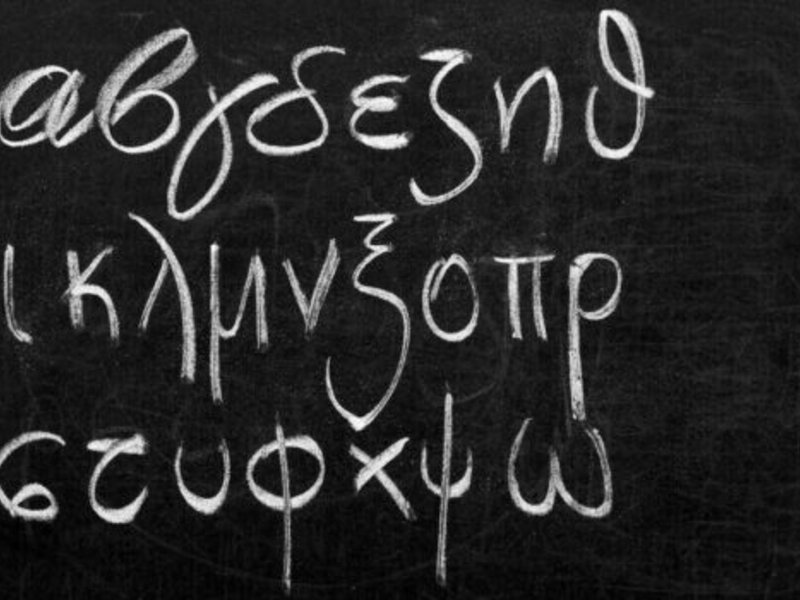 αβγδεζηθ
ικλμνξοπρ
στυφχψω